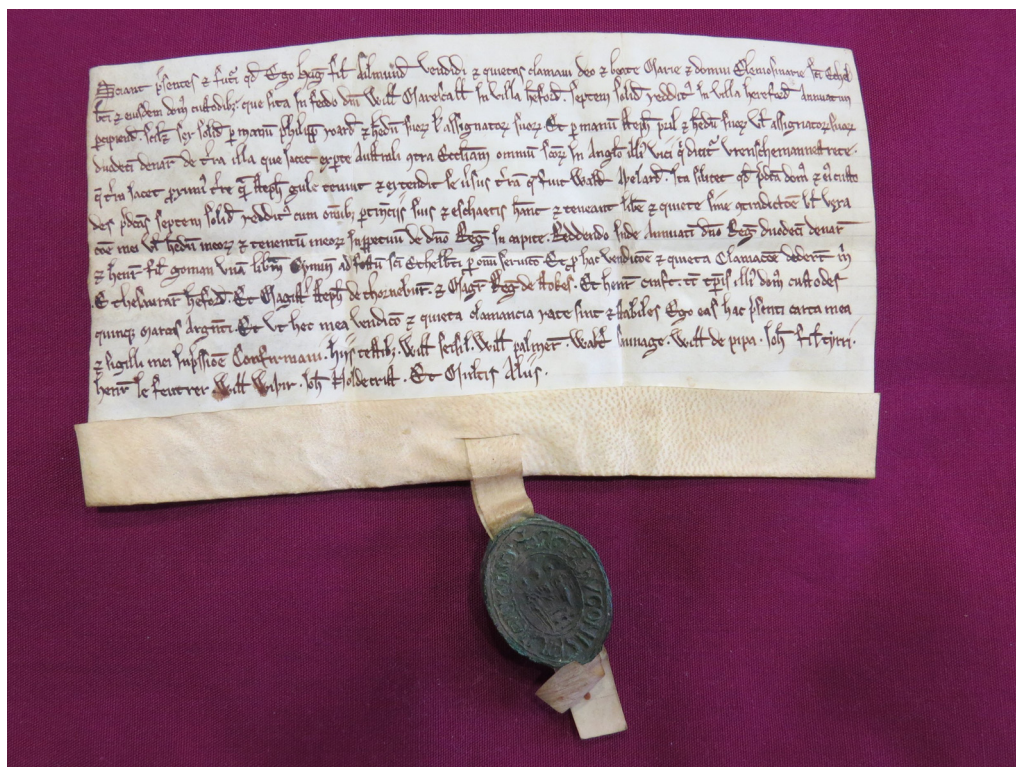 Sciant p'sentes ⁊ fut'i qđ Ego hug' fil' Ailmund' vendidi ⁊ quietas clamaui deo ⁊ beate Marie ⁊ domui Elemosinarie sc̄i Ethel
b'ti ⁊ eiusdem dom' custodib; que sita in feodo dn̄i Will' Marescall' in villa heford' . septem solid' reddit' in villa hereford' Annuatim
p'cipiend' . scil; sex solid' p manū philipp' ⁊ hedū suoꝝ ł assignatoꝝ suoꝝ Et p manū steph' ⁊ hedū suoꝝ ul' assignatoꝝ suoꝝ
duodeci denar' de t'ra illa que iacet ex pte Australi 9tra Eccl'iam omniū sc̄oꝝ in Anglo illi' uici q' dicit' Wrenschemannestrete .
q̄ t'ra iacet p'xim' t're q̄ steph' gule tenuit ⁊ extendit se u'sus t'rā q̄ fuit Walt' . Ita scilicet qđ p'dc̄a dom' ⁊ ei' custo
des p'dc̄as septem solid' reddit' cum om̄ib; p'tinc̄iis suis ⁊ eschaetis hant ⁊ teneant lib'e ⁊ quiete sine 9tradictōe ul' uexa
cōe mei ul' hedū meoꝝ ⁊ tenentiū meoꝝ Inp'petuū de dn̄o Reg' in capite . Reddendo inde Annuati dn̄o Reg' duodeci denar'
⁊ henr' fil' goman unā libr̄m Cymini ad festū sc̄i Ethelb'ti p om̄i seruico . Et p hac vendicōe ⁊ quieta Clamacōe dederūt m̄
E thesaurar' heford' . Et Magist' steph' de thornebur' . ⁊ Magist' Reg' de stokes . Et henr' t̄c tp̄is illi' dom' custodes
quinq; marcas Argn̄ti . Et Vt hec mea vendicō ⁊ quieta clamancia rate sint ⁊ stabiles Ego eas hac p'senti carta mea
⁊ sigilli mei inp'ssiōe Confirmaui . hiis testib; . Will' seisil . Will' palmer' . Walt' . Will' de pipa . Ioh' fil' tyrri .
henr' le feutrer . Will' . Ioh' . Et Multis Aliis .